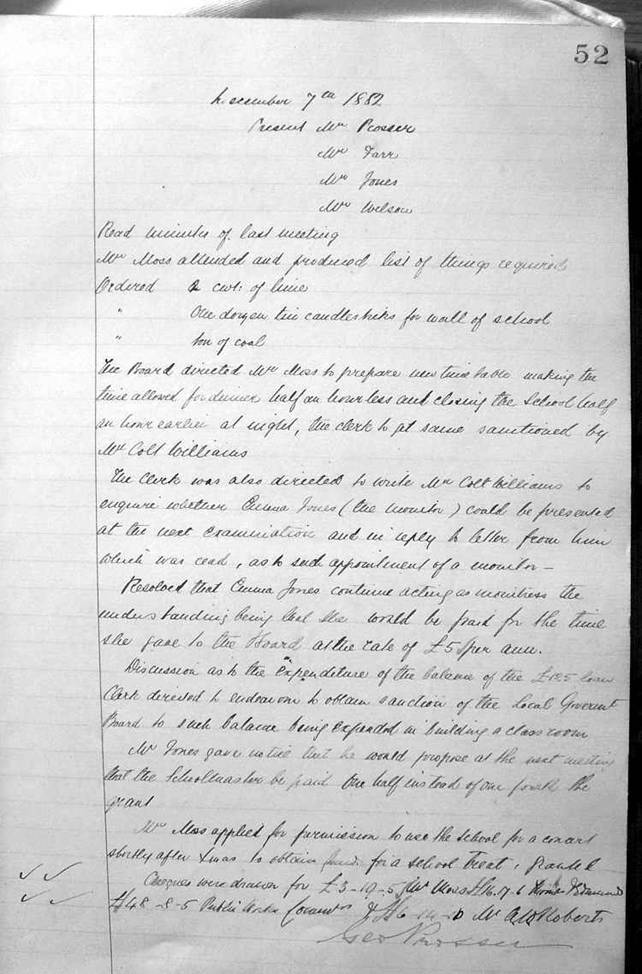 52
December 7th 1882
Present Mr Prosser
Mr Farr
Mr Jones
Mr Wilson
Read minutes of last meeting
Mr Moss attended and produced list of things required
Ordered 2 cwt: of lime
" One dozen tin candlesticks for wall of school
" ton of coal
The Board directed Mr Moss to prepare new time table making the
time allowed for dinner half an hour less and closing the School half
an hour earlier at night, the clerk to get same sanctioned by
Mr Colt Williams
The Clerk was also directed to write Mr Colt Williams to
enquire whether Emma Jones (the monitor) could be presented
at the next examination and in reply to letter from him
which was read, as to such appointment of a monitor –
Resolved that Emma Jones continue acting as monitress the
understanding being that she would be paid for the time
she gave to the Board at the rate of £5 per ann.
Discussion as to the Expenditure of the balance of the £125 loan
Clerk directed to endeavour to obtain sanction of the Local Goverent
Board to such balance being expended in building a class room
Mr Jones gave notice that he would propose at the next meeting
that the Schoolmaster be paid One half instead of one fourth the
grant
Mr Moss applied for permission to use the school for a concert
shortly after Xmas to obtain funds for a school treat, granted
Cheques were drawn for £3-19-5 Mr Moss £16.17.6
£48-8-5 Public Works £6-14-10 Mr Roberts
Geo Prosser